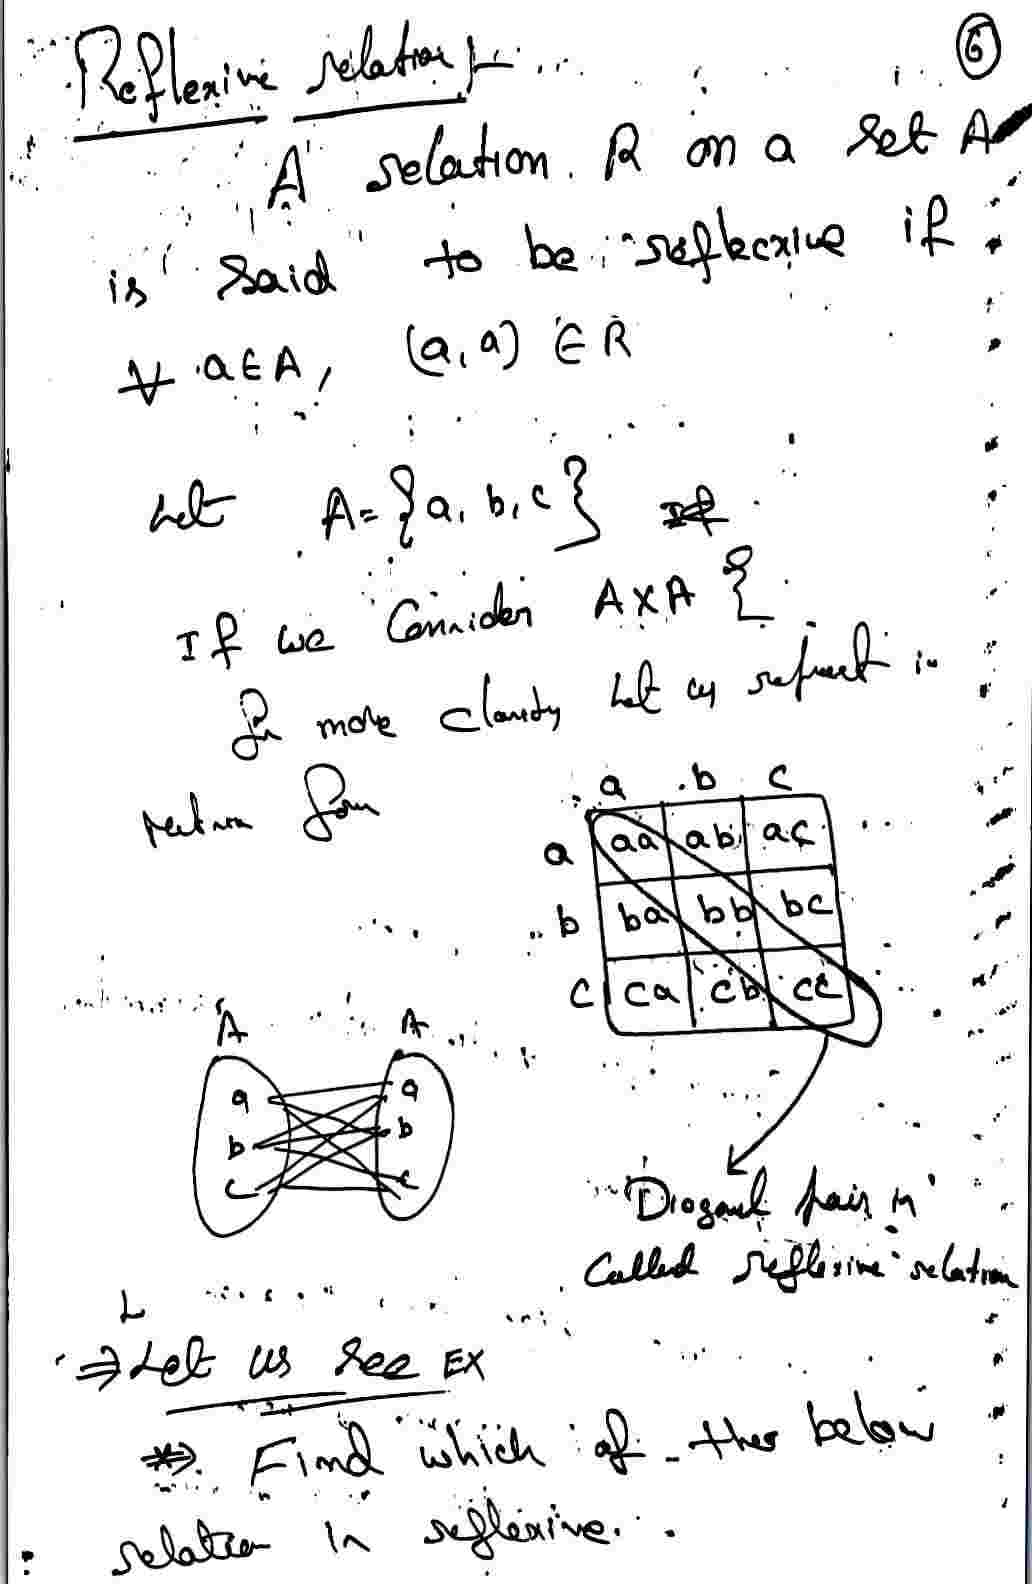 6
Reflexive relation :-
A relation R on a set A
is said to be reflecxive if
∀ a∈A, (a,a) ∈ R
Let A={a, b, c} If
If we Consider A×A {
for more clarity Let us in
form
a b c
a aa ab ac
b ba bb bc
c ca cb cc
A A
a a
b b
c c
Diogonal pair is
Called reflexive relation
L
⇒ Let us see EX
*⇒ Find which of the below
relation is reflexive.